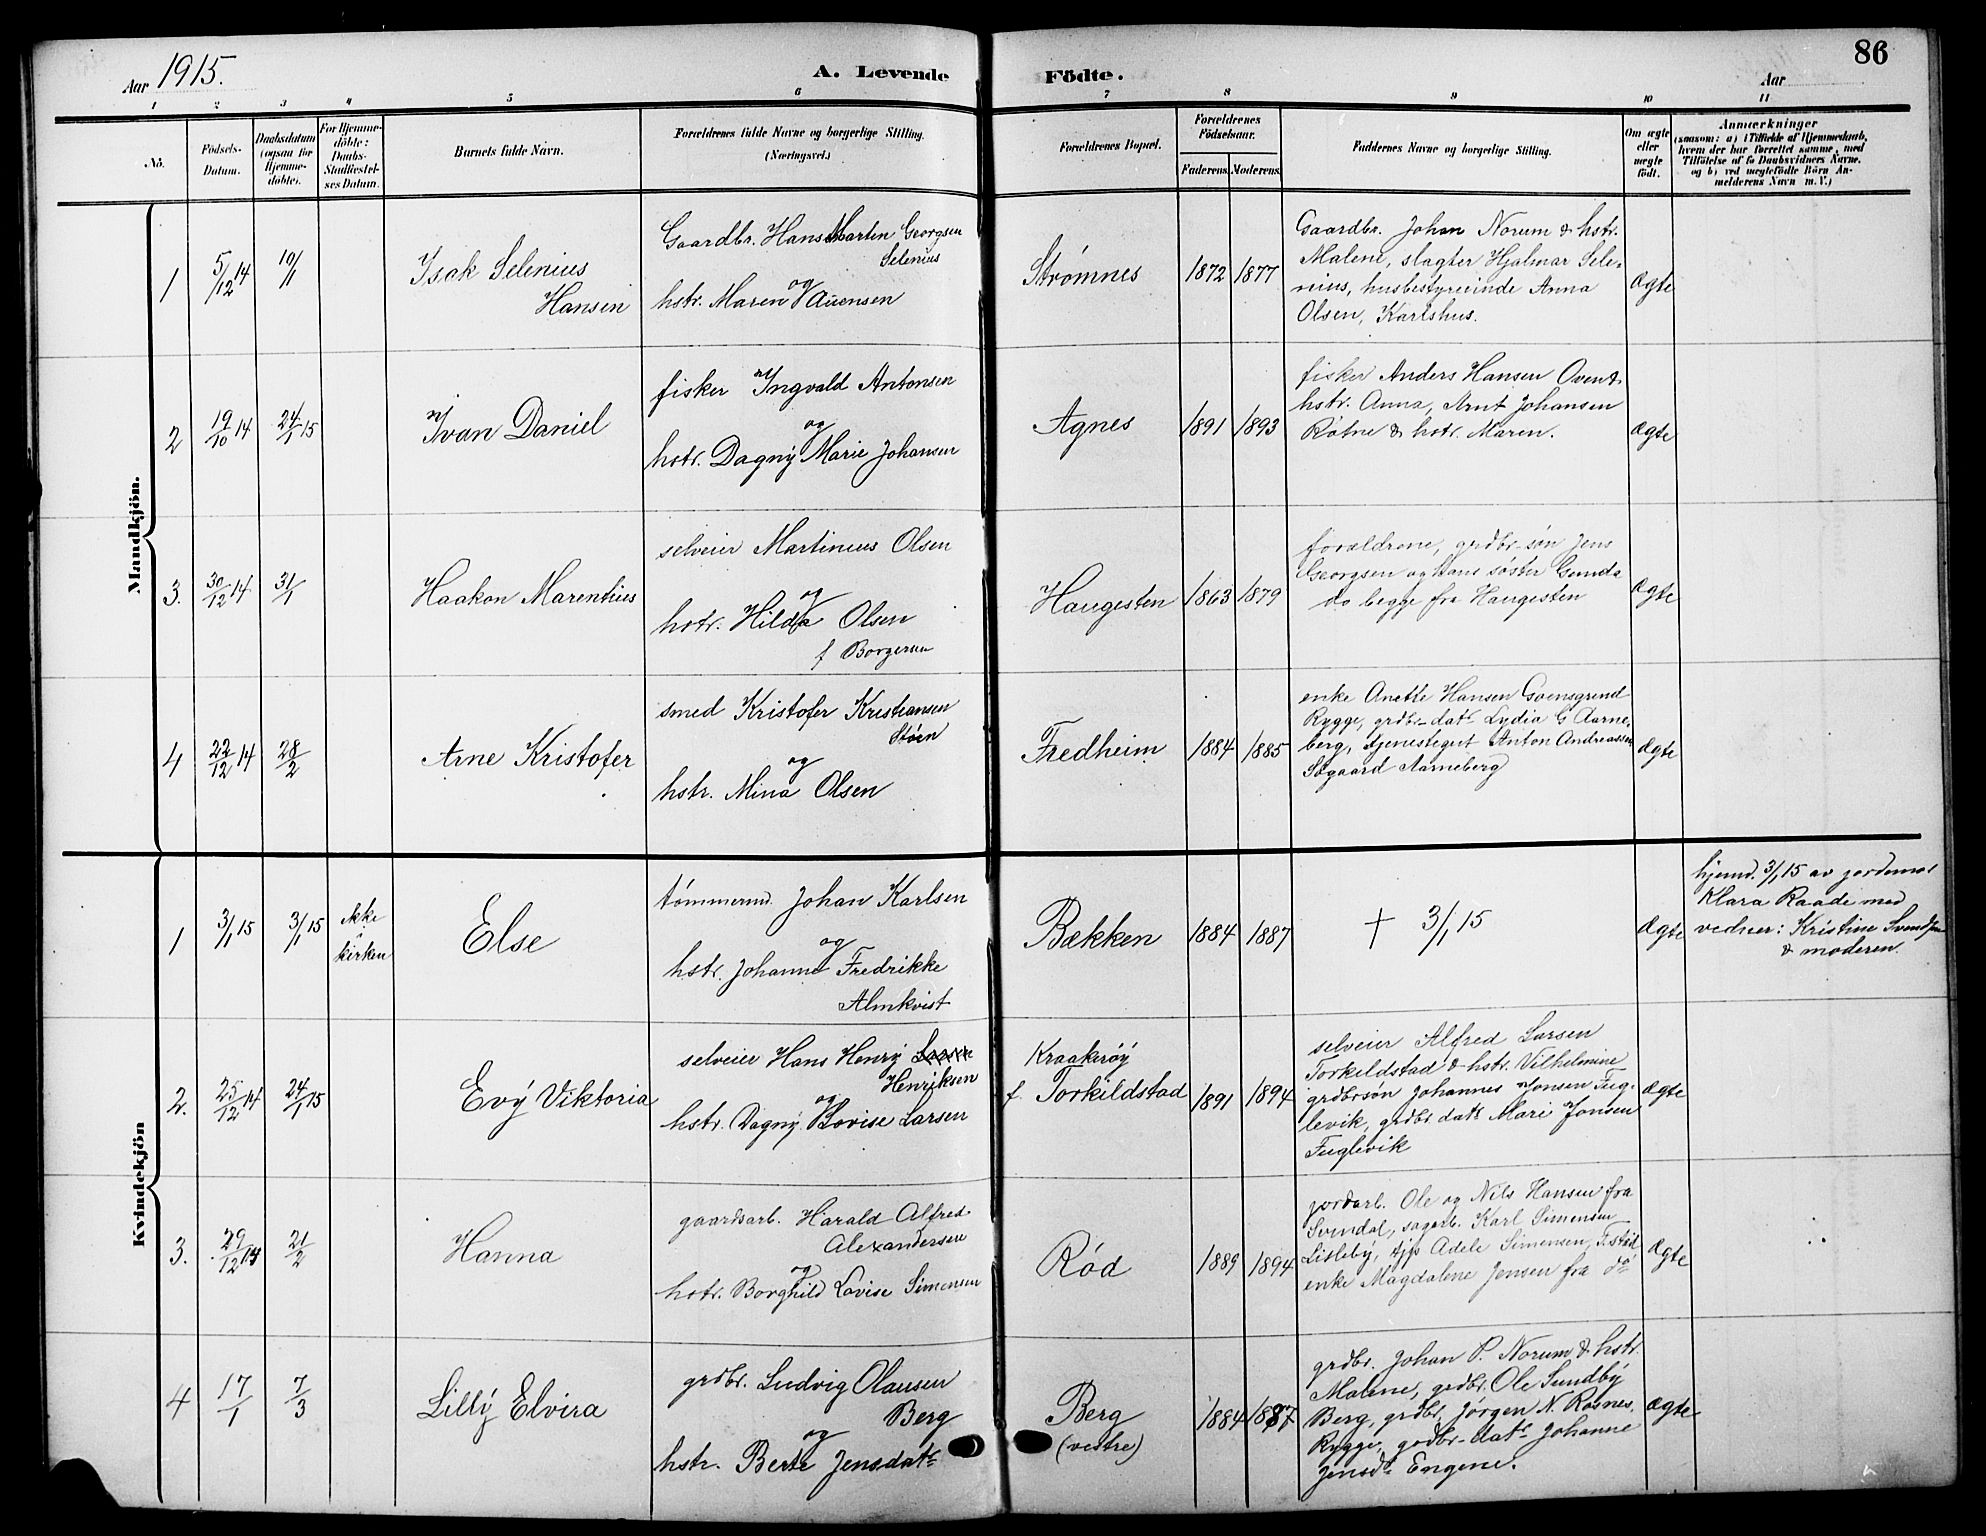 Aar 1915.
A. Levende Födte.
Aar
86
1 2 3 4 5 6 7 8 9 10 11
No.
Födsels-
Datum.
Daabsdatum
(ogsaa for
Hjemme-
döbte).
For Hjemme-
döbte:
Daabs-
Stadfæstel-
ses Datum.
Barnets fulde Navn.
Forældrenes fulde Navne og borgerlige Stilling.
(Næringsvei.)
Forældrenes Bopæl.
Forældrenes
Födselsaar.
Faderens. Moderens.
Faddernes Navne og borgerlige Stilling.
Om ægte
eller
uægte
födt.
Anmærkninger
(saasom: a) i Tilfælde af Hjemmedaab,
hvem der har forrettet samme, med
Tilföielse af to Daabsvidners Navne,
og b) ved uægtefödte Börn An-
melderens Navn m. V.)
Mandkjön.
1
5/12 14
10/1
Isak Selenius
Hansen
Gaardbr. Hans Martin Georgsen
Selenius
og
hstr. Maren Auensen
Strømnes
1872 1877
Gaardbr. Johan Norum & hstr.
Malene, slagter Hjalmar Sele-
nius, husbestyrerinde Anna
Olsen, Karlshus.
Ægte
2
19/10 14
24/1 15
Ivan Daniel
fisker Ingvald Antonsen
og
hstr. Dagny Marie Johansen
Agnes
1891 1893
fisker Anders Hansen Oven &
hstr. Anna, Arnt Johansen
Røtne & hstr. Maren.
Ægte
3.
30/12 14
31/1
Haakon Marentius
selveier Martinius Olsen
og
hstr. Hilda Olsen
f Borgersen
Haugesten
1863 1879
forældrene, grdbr-søn Jens
Georgsen og hans søster Gunda
do begge fra Haugesten
Ægte
4
22/12 14
28/2
Arne Kristofer
smed Kristofer Kristiansen
Støen
og
hstr. Mina Olsen
Fredheim
1884 1885
enke Anette Hansen Goensgrind
Rygge, grdbr-datr Lydia G Aarne-
berg, tjenestegut Anton Andreassen
Søgaard Aarneberg
Ægte
Kvindekjön
1
3/1 15
3/1 15
ikke
i
kirken
Else
tømmermd. Johan Karlsen
og
hstr. Johanne Fredrikke
Almkvist
Bækken
1884 1887
† 3/1 15
Ægte
hjemd. 3/1 15 av jordemor
Klara Raade med
vedner: Kristine Svendsen
& moderen.
2.
25/12 14
24/1 15
Evy Viktoria
selveier Hans Henry Larsen
Henriksen
og
hstr. Dagny Lovise Larsen
Kraakerøy
f. Torkildstad
1891 1894
selveier Alfred Larsen
Torkildstad & hstr. Vilhelmine
grdbrsøn Johannes Jonsen Fug-
levik, grdbr. datr Mari Jonsen
Fuglevik
Ægte
3.
29/12 14
21/2
Hanna
gaardsarb. Harald Alfred
Alexandersen
og
hstr. Borghild Lovise Simensen
Rød
1889 1894
jordarb. Ole og Nils Hansen fra
Svindal, sagarb. Karl Simensen
Lisleby, tjp Adele Simensen, F.stad
enke Magdalene Jensen fra do
Ægte
4
17/1
7/3
Lilly Elvira
grdbr. Ludvig Olausen
Berg
og
hstr. Berte Jensdatr
Berg
(vestre)
1884 1887
grdbr. Johan P. Norum & hstr.
Malene, grdbr. Ole Sundby
Berg, grdbr. Jørgen N. Rosnes,
Rygge, grdbr-datr Johanne
Jensdr Engene.
Ægte